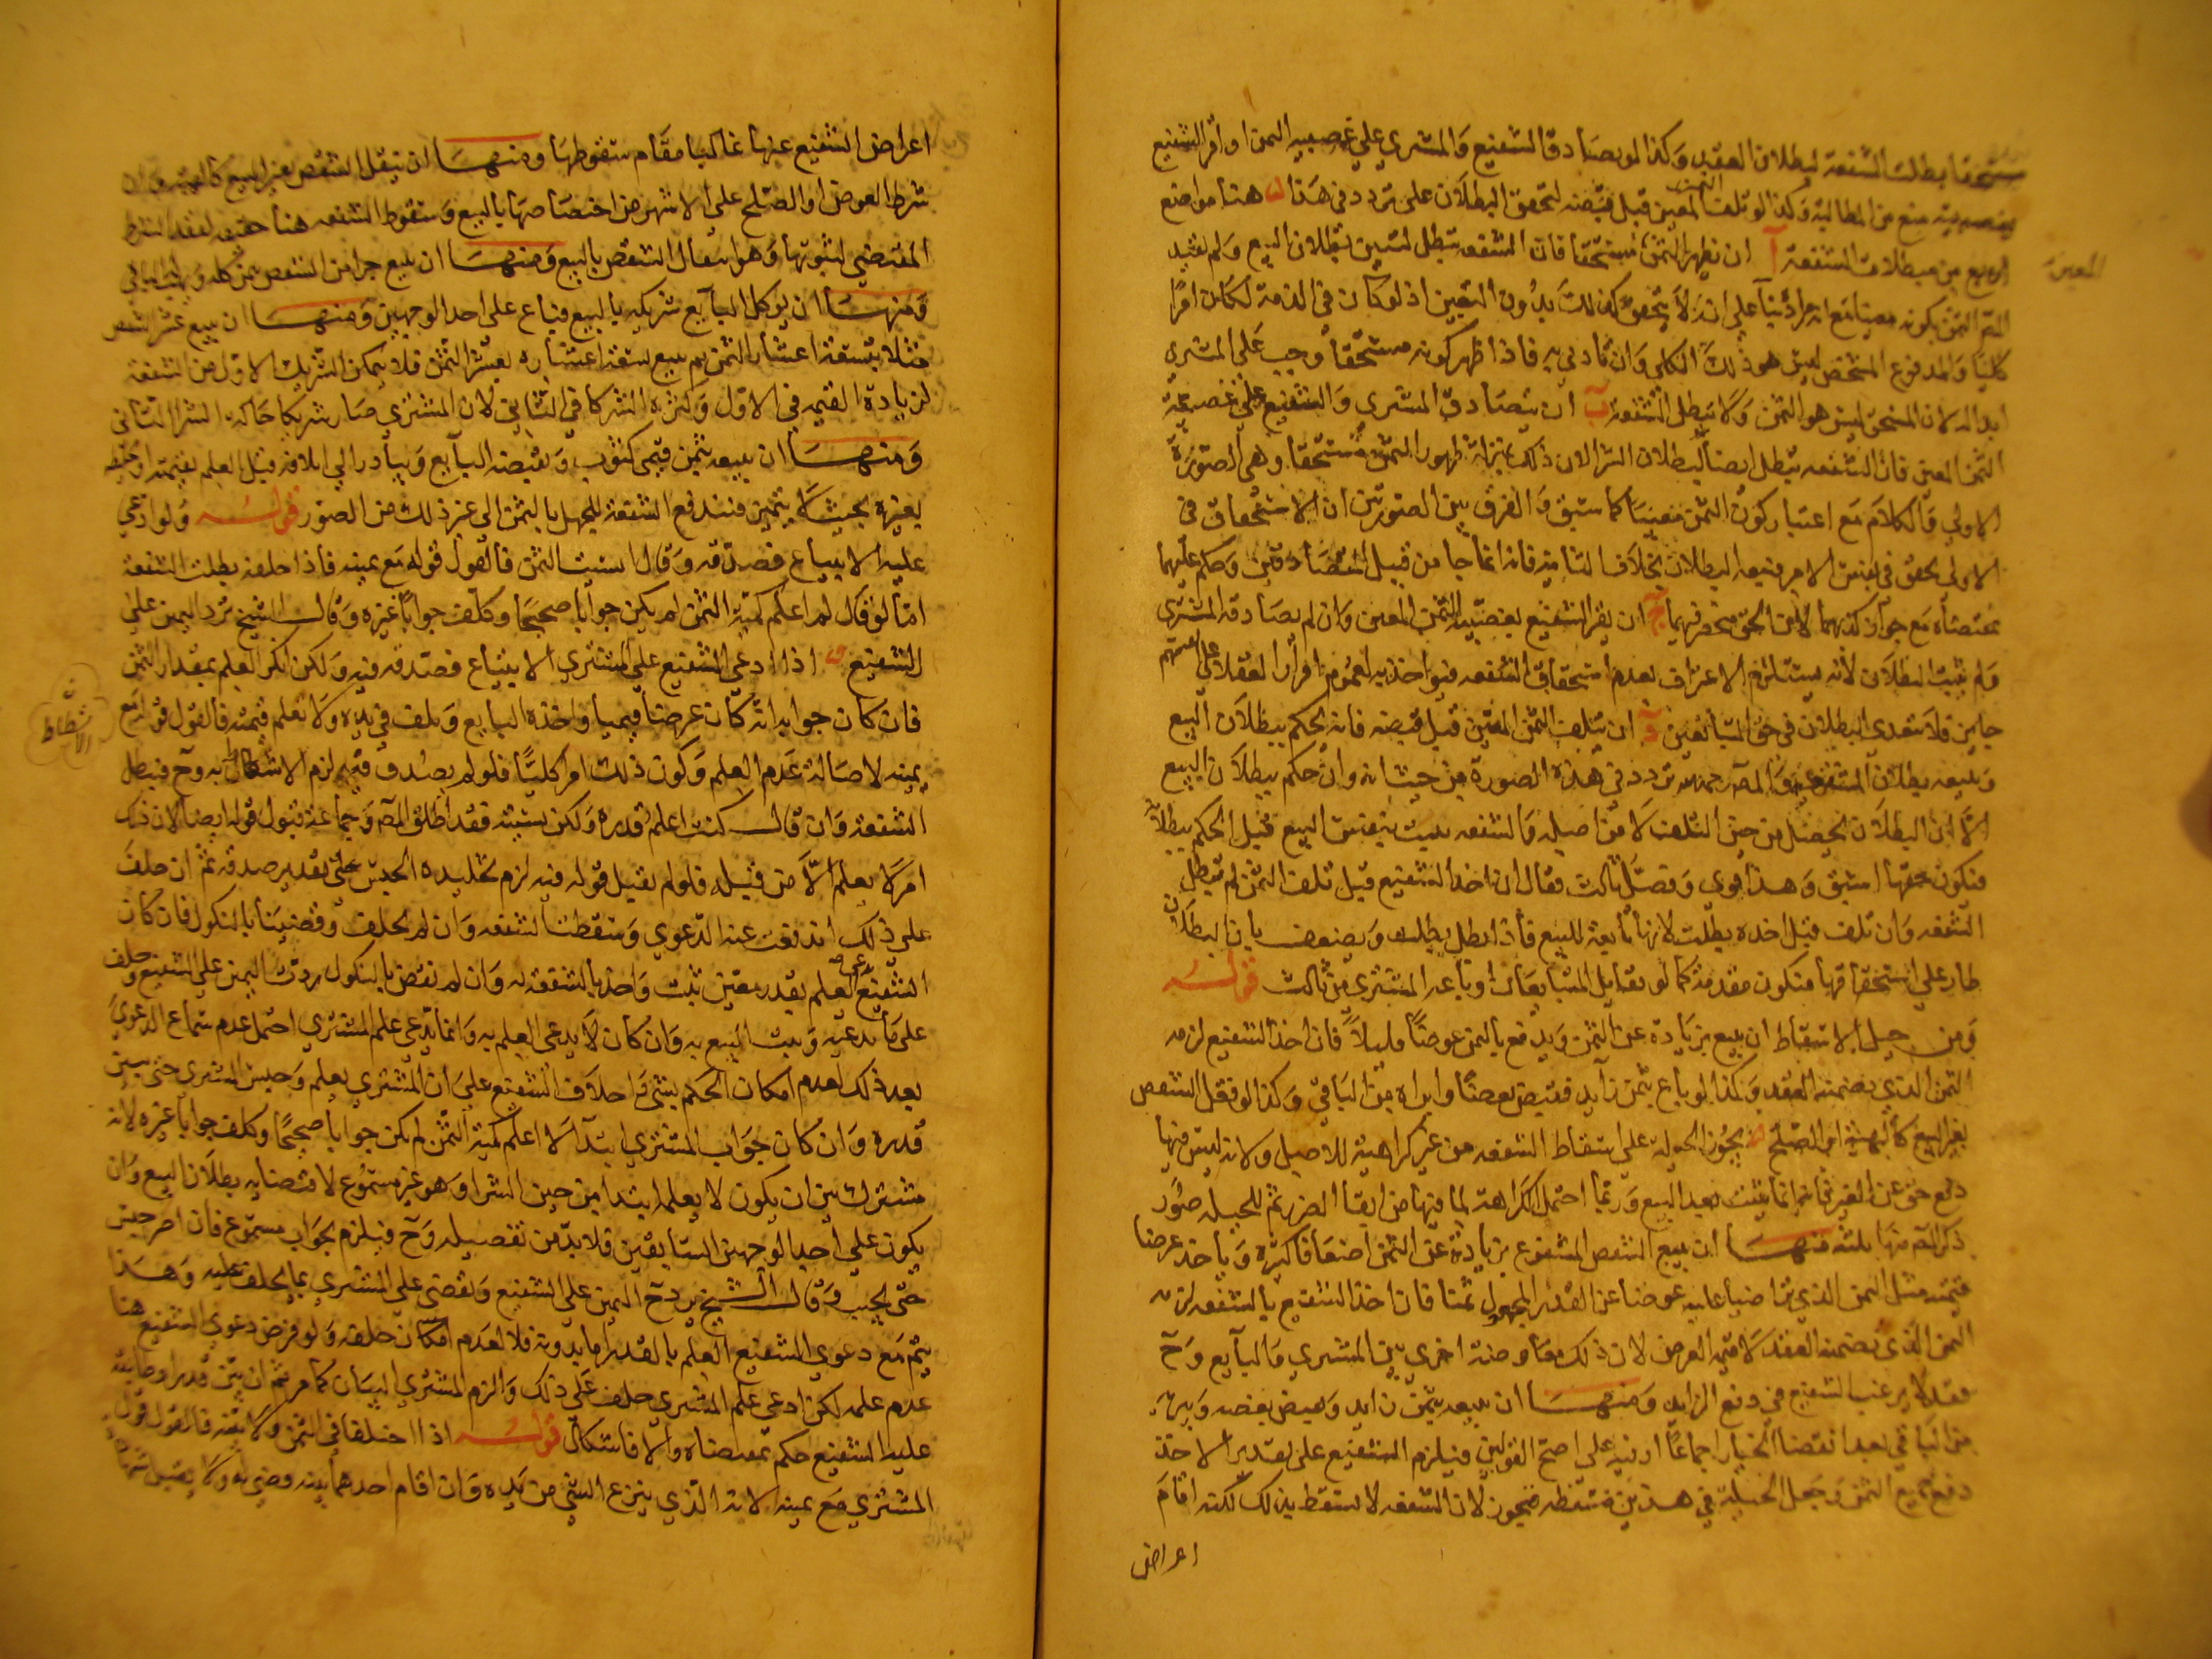 مستحقا بطلت الشفعة لبطلان العقد وكذا لو تصادق الشفيع والمشتري على غصبيه الثمن او اقر الشفيع
بغصبيته منع من المطالبة وكذا لو تلف الثمن المعين قبل قبضه لتحقق البطلان على تردد في هذا هنا مواضع
اربع من مبطلات الشفعة آ ان يظهر الثمن مستحقا فان الشفعه تبطل لتبين بطلان البيع ولم يقيد
المعين
المص الثمن بكونه معينا مع انه مراد بناء على انه لا يتحقق كونه ثمنا بدون التعيين اذ لو كان في الذمة لكان امرا
كليا والمدفوع المشخص ليس هو ذلك الكلي وان تادى به فاذا ظهر كونه مستحقا وجب على المشتري
ابداله لان المستحق ليس هو الثمن ولا تبطل الشفعة ب ان يتصادق المشترى والشفيع على غصبية
الثمن المعين فان الشفعه تبطل ايضا لبطلان الشرا لان ذلك بمنزلة ظهور الثمن مستحقا وهي الصورة
الاولى والكلام مع اعتبار كون الثمن معينا كما سبق والفرق بين الصورتين ان الاستحقاق في
الاولى تحقق في نفس الامر فتبعه البطلان بخلاف الثانية فانه انما جا من قبل المتصادقين وحكم عليهما
بمقتضاه مع جواز كذبهما لان الحق منحصر فيهما ج ان يقر الشفيع بغصبيه الثمن المعين وان لم يصادقه المشتري
ولم يثبت البطلان لانه يستلزم الاعتراف بعدم استحقاق الشفعه فيواخذ به لعموم اقرار العقلا على انفسهم
جايز فلا يتعدى البطلان في حق المتبايعين د ان يتلف الثمن المعين قبل قبضه فانه يحكم ببطلان البيع
ويتبعه بطلان الشفعة والمص رحمه الله تردد في هذه الصورة من حيث انه وان حكم ببطلان البيع
الا ان البطلان يحصل من حين التلف لا من اصله والشفعه تثبت بنفس البيع قبل الحكم ببطلانه
فيكون حقها اسبق وهذا قوي وفصل ثالث فقال ان اخذ الشفيع قبل تلف الثمن لم تبطل
الشفعه وان تلف قبل اخذه بطلت لانها تابعة للبيع فاذا بطل بطلت ويضعف بان البطلان
طار على استحقاقها فتكون مقدمة كما لو تقايل المتبايعان او باعه المشتري من ثالث قوله
ومن حيل الاسقاط ان يبيع بزيادة عن الثمن ويدفع بالثمن عوضا قليلا فان اخذ الشفيع لزمه
الثمن الذي يضمنه العقد وكذا لو باع بثمن زايد فقبض بعضا وابراه من الباقي وكذا لو نقل الشقص
بغير البيع كالهبة او الصلح يجوز الحيلة على اسقاط الشفعه من غير كراهية للاصل ولانه ليس فيها
دفع حق عن الغير فانها انما تثبت بعد البيع وربما احتمل الكراهة لما فيها من ابقا الضرر ثم للحيله صور
ذكر المص منها ثلثة منها ان يبيع الشقص المشفوع بزيادة عن الثمن اضعافا كثيرة وياخذ عرضا
قيمته مثل الثمن الذي تراضيا عليه عوضا عن القدر المجعول ثمنا فان اخذ الشفيع بالشفعه لزمه
الثمن الذي تضمنه العقد لا قيمة العرض لان ذلك معاوضة اخرى بين المشتري والبايع وح
فقد لا يرغب الشفيع في دفع الزايد ومنها ان يبيعه بثمن زايد ويقبض بعضه ويبريه
من الباقي بعد انقضا الخيار اجماعا او فيه على اصح القولين فيلزم الشفيع على تقدير الاخذ
دفع جميع الثمن وجعل الحيلة في هذين مسقطه تجوز لان الشفعه لا تسقط بذلك لكنه اقام
اعراض
اعراض الشفيع عنها غالبا مقام سقوطها ومنها ان ينقل الشقص بغير البيع كالهبة
بشرط العوض او الصلح على الاشهر من اختصاصها بالبيع وسقوط الشفعه هنا حقيقه لفقد الشرط
المقتضي لثبوتها وهو انتقال الشقص بالبيع ومنها ان يبيع جزا من الشقص بثمن كله ويهب الباقي
ومنها ان يوكل البايع شريكه بالبيع فيباع على احد الوجهين ومنها ان يبيع عشر الشقص
مثلا بتسعة اعشار الثمن ثم يبيع تسعة اعشاره بعشر الثمن فلا يتمكن الشريك الاول من الشفعة
لزيادة القيمه في الاول وكثرة الشركا في الثاني لان المشتري صار شريكا حاله الشرا الثاني
ومنها ان يبيعه بثمن قيمي كثوب ويقبضه البايع ويبادر الى اتلافه قبل العلم بقيمته او يخلطه
بغيره بحيث لا يتميز فتندفع الشفعة للجهل بالثمن الى غير ذلك من الصور قوله ولو ادعي
عليه الابتياع فصدقه وقال انسيت الثمن فالقول قوله مع يمينه فاذا حلف بطلت الشفعة
اما لو قال لم اعلم كمية الثمن لم يكن جوابا صحيحا وكلف جوابا غيره وقال الشيخ ترد اليمين على
الشفيع اذا ادعى الشفيع على المشتري الابتياع فصدقه فيه ولكن انكر العلم بمقدار الثمن
فان كان جوابه انه كان عرضا قيميا واخذه البايع وتلف في يده ولا نعلم قيمته فالقول قوله مع
يمينه لاصالة عدم العلم وكون ذلك امرا كليا فلو لم يصدق فيه لزم الاشطاط به وح فتبطل
الاشطاط ن
الشفعة وان قال كنت اعلم قدره ولكن نسيته فقد اطلق المص وجماعة قبول قوله ايضا لان ذلك
امر لا يعلم الا من قبله فلو لم يقبل قوله فيه لزم تخليده الحبس على تقدير صدقه ثم ان حلف
على ذلك اندفعت عنه الدعوي وسقطت الشفعه وان لم يحلف وقضينا بالنكول فان كان
الشفيع يدعي العلم بقدر معين ثبت واخذ بالشفعة له وان لم نقض بالنكول ردت اليمين على الشفيع وحلف
على ما يدعيه ويثبت البيع به وان كان لا يدعى العلم به وانما يدعي علم المشتري احتمل عدم سماع الدعوي
بعد ذلك لعدم امكان الحكم بشئ واحلاف الشفيع على ان المشتري يعلم وحبس المشتري حتى يبين
قدره وان كان جواب المشتري ابتدآ لا اعلم كمية الثمن لم يكن جوابا صحيحا وكلف جوابا غيره لانه
مشترك بين ان يكون لا يعلمه ابتدا من حين الشرا وهو غير مسموع لاقتضايه بطلان البيع وان
يكون على احد الوجهين السابقين فلا بد من تفصيله وح فيلزم بجواب مسموع فان اصر حبس
حتى يجيب وقال الشيخ يرد ح اليمين على الشفيع ويقضى على المشتري بما يحلف عليه وهذا
يتم مع دعوي الشفيع العلم بالقدر اما بدونه فلا لعدم امكان حلفه ولو فرض دعوي الشفيع هنا
عدم علمه لكن ادعى علم المشتري حلف على ذلك والزم المشتري البيان كما مر ثم ان بين قدرا وصادقه
عليه الشفيع حكم بمقتضاه والا فاشكال قوله اذا اختلفا في الثمن ولا بينة فالقول قول
المشتري مع يمينه لانه الذي ينزع الشئ من يده وان اقام احدهما بينه قضي له ولا يقبل